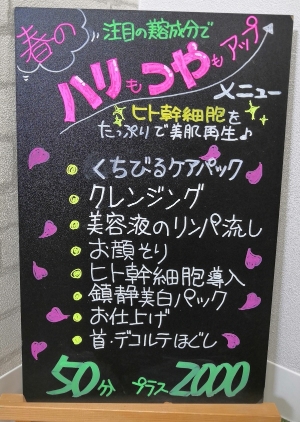 春の
注目の美容成分で
ハリもつやもアップ
メニュー
ヒト幹細胞を
たっぷりで美肌再生♪
くちびるケアパック
クレンジング
美容液のリンパ流し
お顔そり
ヒト幹細胞導入
鎮静美白パック
お仕上げ
首・デコルテほぐし
50分 プラス2000